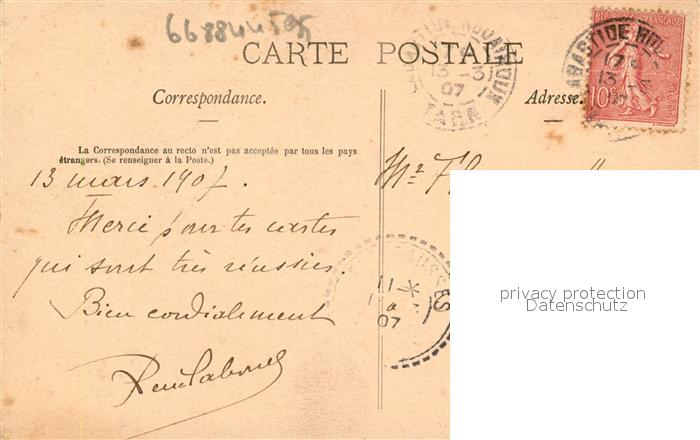 6688445
CARTE POSTALE
Correspondance.
Adresse.
La Correspondance au recto n'est pas acceptée par tous les pays
étrangers. (Se renseigner à la Poste.)
13 mars 1907.
Merci pour tes cartes
qui sont très réussies.
Bien cordialement
RÉPUBLIQUE FRANÇAISE
10c
POSTES
LABASTIDE ROUAIROUX
13 -3
07
TARN
11
07
privacy protection
Datenschutz